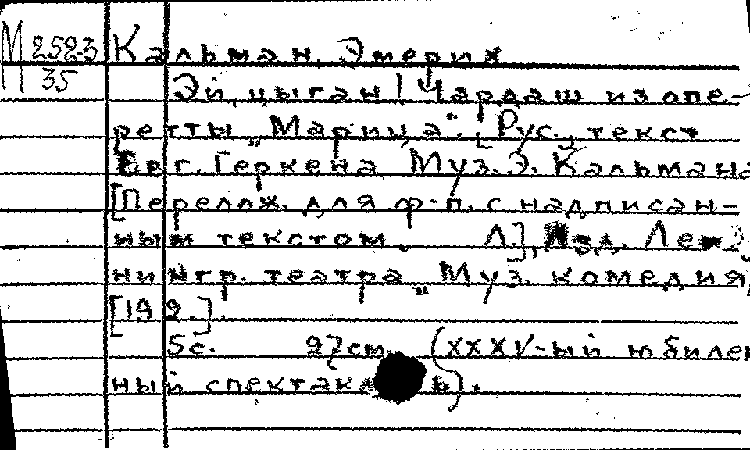 М 2523 Кальман, Эмерих
35 Эй, цыган! Чардаш из опе-
ретты „Марица“. [Рус., текст
Евг. Геркена Муз. Э. Кальмана
[Перелож. для ф-п. с надписан-
ным текстом. Л], Изд. Лен
нингр. театра „Муз. комедия,
[192.].
5с. 27см. (XXXV-ый юбилей
ный спектакль).